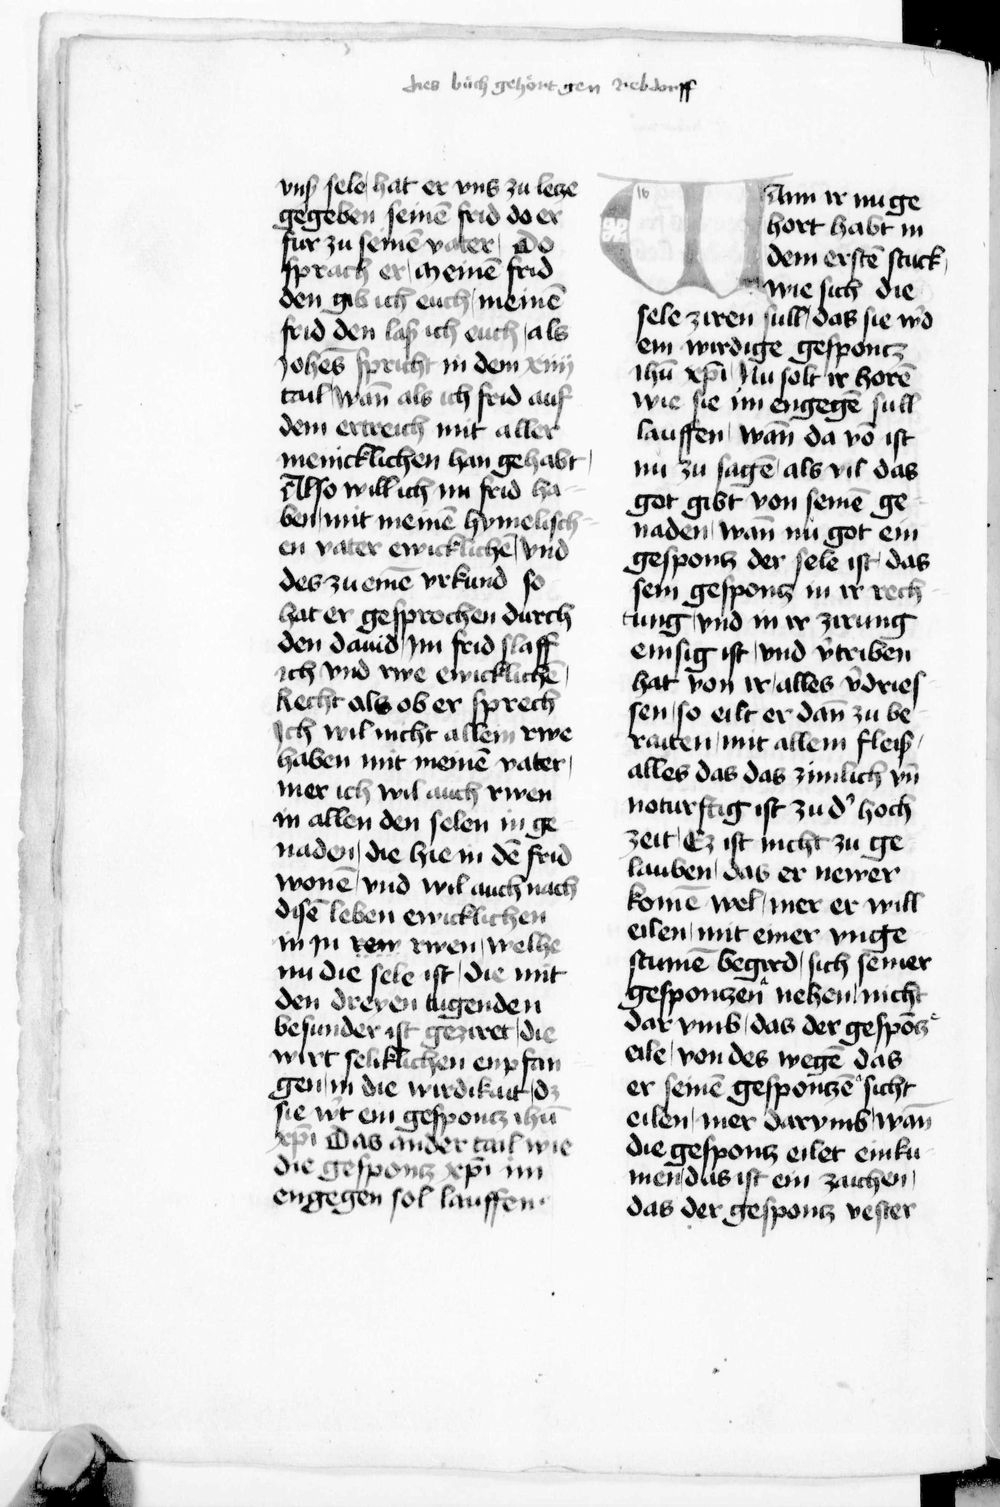 dies bůch gehört gen Rebdorff
vnsʼ sele / hat er vns zu letze
gegeben seinē frid do er
fur zu seinē vater / Do
sprach er / Meinē frid
den gib ich euch / meinē
frid den laß ich euch / als
Johēs spricht in dem xiiij
tail / Wan̄ als ich frid auf
dem ertreich mit aller
menicklichen han gehabt /
Also will ich nu frid ha-
ben / mit meinē hymelisch-
en vater ewicklichē / vnd
des zu einē vrkund so
hat er gesprochen durch
den dauid / Im frid slaff
ich vnd rwe ewicklichē /
Recht als ob er sprech
Ich wil nicht allein rwe
haben mit meinē vater /
mer ich wil auch rwen
in allen den selen in ge-
naden / die hie in dē frid
wonē / vnd wil auch nach
disē leben ewicklichen
in in rew rwen / welhe
nu die sele ist / die mit
den dreyen tugenden
besunder ist geziret / die
wirt seliklichen enpfan
gen / in die wirdikait / dz
sie wʼt ein gespontz ihū
xp̄i Das ander tail wie
die gespontz xp̄i im
engegen sol lauffen ·
16
Wann ir nu ge
hort habt in
dem erstē stuck /
wie sich die
sele ziren sull / das sie wʼd
ein wirdige gespontz
ihū xp̄i / Nu solt ir horē
wie sie im engegē sull
lauffen / wan̄ da vō ist
nu zu sagē / als vil das
got gibt von seinē ge-
naden / wan̄ nu got ein
gespontz der sele ist / das
sein gespontz in ir rech-
tung / vnd in ir zirung
einsig ist / vnd vʼtriben
hat von ir / alles vʼdries-
sen / so eilt er dan̄ zu be-
raiten / mit allem fleiß /
alles das das zimlich vn̄
noturftig ist zu dʼ hoch
zeit / Ez ist nicht zu ge-
lauben / das er newer
komē wel / mer er will
eilen / mit einer vnge-
stumē begird / sich seiner
gespontzen nehen / nicht
dar vmb / das der gespōtz
eile / von des wegē das
er seinē gespontzē sicht
eilen / mer darvmb / wan̄
die gespontz eilet einku-
men / das ist ein zaichen /
das der gespontz vester